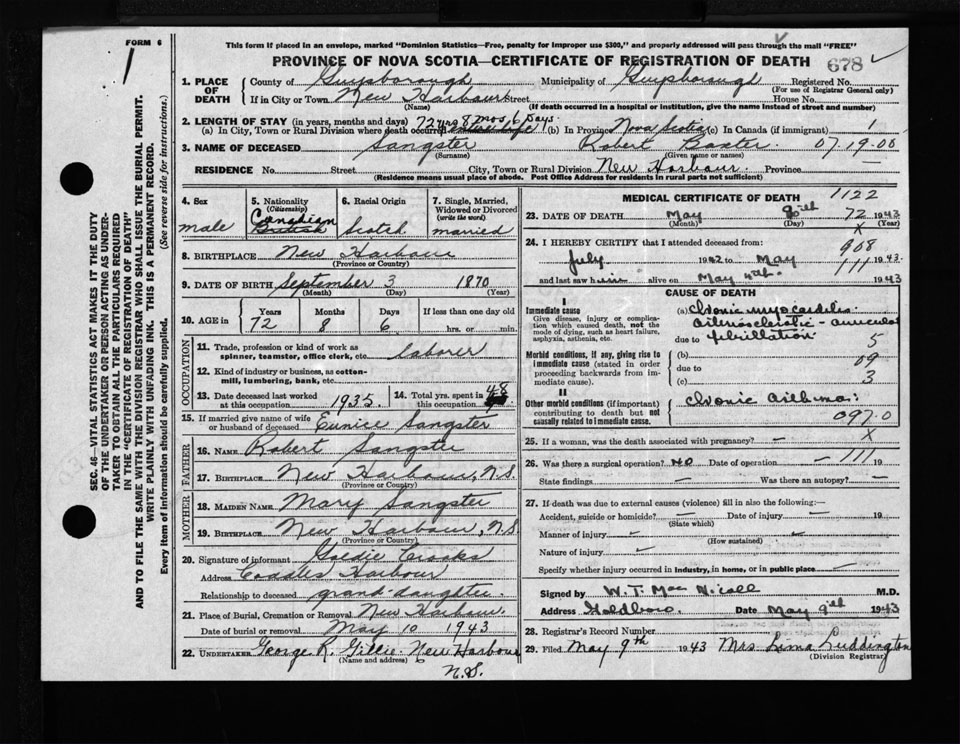 FORM 6
1
SEC. 46—VITAL STATISTICS ACT MAKES IT THE DUTY
OF THE UNDERTAKER OR PERSON ACTING AS UNDER-
TAKER TO OBTAIN ALL THE PARTICULARS REQUIRED
IN THE "CERTIFICATE OF REGISTRATION OF DEATH"
AND TO FILE THE SAME WITH THE DIVISION REGISTRAR WHO SHALL ISSUE THE BURIAL PERMIT.
WRITE PLAINLY WITH UNFADING INK. THIS IS A PERMANENT RECORD.
Every item of information should be carefully supplied. (See reverse side for instructions.)
This form if placed in an envelope, marked "Dominion Statistics—Free, penalty for improper use $300," and properly addressed will pass through the mail "FREE"
PROVINCE OF NOVA SCOTIA—CERTIFICATE OF REGISTRATION OF DEATH 678
1. PLACE OF DEATH County of Guysborough Municipality of Guysborough Registered No.
(For use of Registrar General only)
If in City or Town New Harbour Street House No.
(Name) (If death occurred in a hospital or institution, give the name instead of street and number)
2. LENGTH OF STAY (in years, months and days) 72 yrs 8 mos 6 days.
(a) In City, Town or Rural Division where death occurred (b) In Province Nova Scotia (c) In Canada (if immigrant) 1
3. NAME OF DECEASED Sangster Robert Baxter. 07.19.00
(Surname) (Given name or names)
RESIDENCE No. Street City, Town or Rural Division New Harbour. Province
(Residence means usual place of abode. Post Office Address for residents in rural parts not sufficient)
4. Sex male
5. Nationality (Citizenship) Canadian British
6. Racial Origin Scotch
7. Single, Married, Widowed or Divorced (write the word) married
8. BIRTHPLACE New Harbour
(Province or Country)
9. DATE OF BIRTH September 3 1870
(Month) (Day) (Year)
10. AGE in Years Months Days If less than one day old
72 8 6 hrs. or min.
OCCUPATION
11. Trade, profession or kind of work as spinner, teamster, office clerk, etc. laborer
12. Kind of industry or business, as cotton-mill, lumbering, bank, etc.
13. Date deceased last worked at this occupation 1935. 14. Total yrs. spent in this occupation 48
15. If married give name of wife or husband of deceased Eunice Sangster
FATHER
16. NAME Robert Sangster
17. BIRTHPLACE New Harbour, N.S.
(Province or Country)
MOTHER
18. MAIDEN NAME Mary Sangster
19. BIRTHPLACE New Harbour, N.S
(Province or Country)
20. Signature of informant Goldie Crooks
Address Harbour
Relationship to deceased grand-daughter.
21. Place of Burial, Cremation or Removal New Harbour.
Date of burial or removal May 10 1943
22. UNDERTAKER George R. Gillie. New Harbour
(Name and address)
N.S.
MEDICAL CERTIFICATE OF DEATH 1122
23. DATE OF DEATH May 72 1943
(Month) (Day) (Year)
X
24. I HEREBY CERTIFY that I attended deceased from: 908
July 1942 to May 111 1943
and last saw him alive on May 1943
CAUSE OF DEATH
I
Immediate cause
Give disease, injury or complication which caused death, not the mode of dying, such as heart failure, asphyxia, asthenia, etc.
(a) Chronic myocarditis
arteriosclerotic - auricular
due to fibrillation 5
Morbid conditions, if any, giving rise to immediate cause (stated in order proceeding backwards from immediate cause).
(b) 09
due to
(c) 3
II
Other morbid conditions (if important) contributing to death but not causally related to immediate cause.
chronic asthma:
097.0
25. If a woman, was the death associated with pregnancy? - X
26. Was there a surgical operation? NO Date of operation - 111 19
State findings - Was there an autopsy? -
27. If death was due to external causes (violence) fill in also the following:—
Accident, suicide or homicide? Date of injury 19
(State which)
Manner of injury
(How sustained)
Nature of injury
Specify whether injury occurred in industry, in home, or in public place
Signed by W. T. MacNicoll M.D.
Address Goldboro. Date May 9th 1943
28. Registrar's Record Number
29. Filed May 9th 1943 Mrs. Luddington
(Division Registrar)